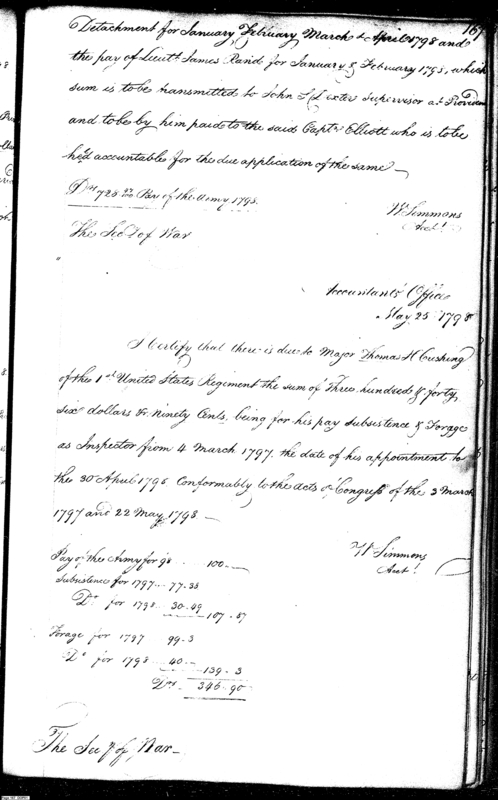 167
Detachment for January, February, March & April 1798 and
the pay of Lieutt James Rand for January & February 1798, which
sum is to be transmitted to John S Dexter Supervisor at Providen
and to be by him paid to the said Captn Elliott who is to be
held accountable for the due application of the same —
Drs 728 Pay of the Army 1798.
Wm Simmons
Acct.
The Sec of War
Accountants Office
May 25 1798
I Certify that there is due to Major Thomas H Cushing
of the 1st United States Regiment the sum of Three hundred & forty
six dollars & ninety Cents, being for his pay subsistence & Forage
as Inspector from 4 March 1797, the date of his appointment to
the 30 April 1798 Conformably to the acts of Congress of the 3 March
1797 and 22 May 1798 —
Wm Simmons
Acct.
Pay of the Army for 98 . 100. —
Subsistence for 1797 . 77.38
Do for 1798 . 30.49
107.87
Forage for 1797 99.3
Do for 1798 40 —
139.3
Drs 346.90
The Secy of War —